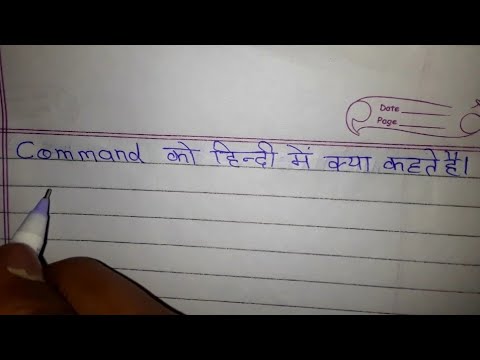 Date
Page
Command को हिन्दी में क्या कहते है।